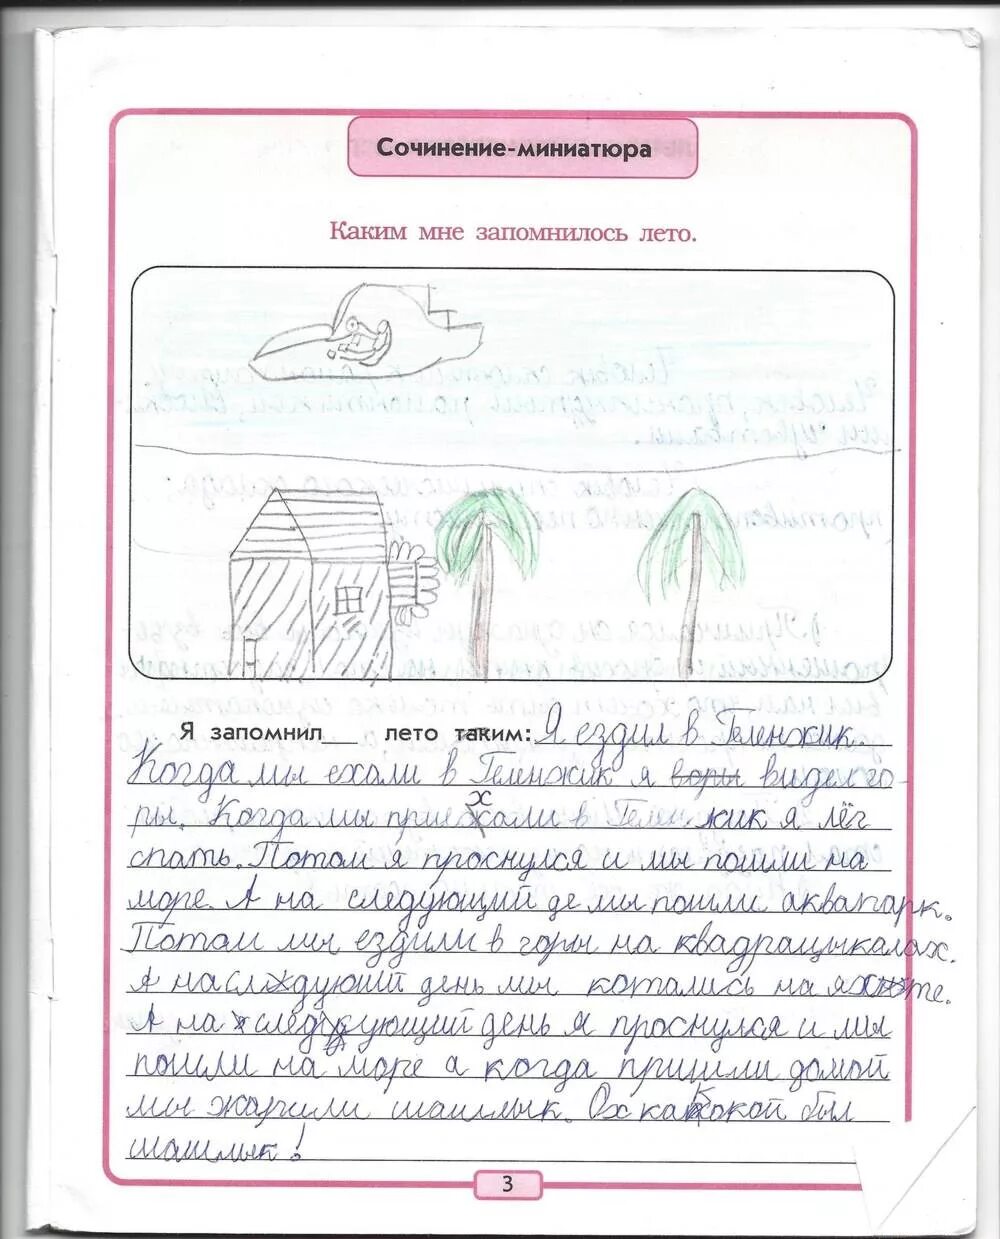 Сочинение-миниатюра
Каким мне запомнилось лето.
Я запомнил лето таким: Я ездил в Геленжик.
Когда мы ехали в Геленжик я воры видел го-
ры. Когда мы приехали в Геленжик я лёг
спать. Потом я проснулся и мы пошли на
море. А на следующий де мы пошли аквапарк.
Потом мы ездили в горы на квадрацыкалах.
А на следующий день мы котались на яхте.
А на следующий день я проснулся и мы
пошли на море а когда пришли домой
мы жарили шашлык. Ох какой был
шашлык!
3